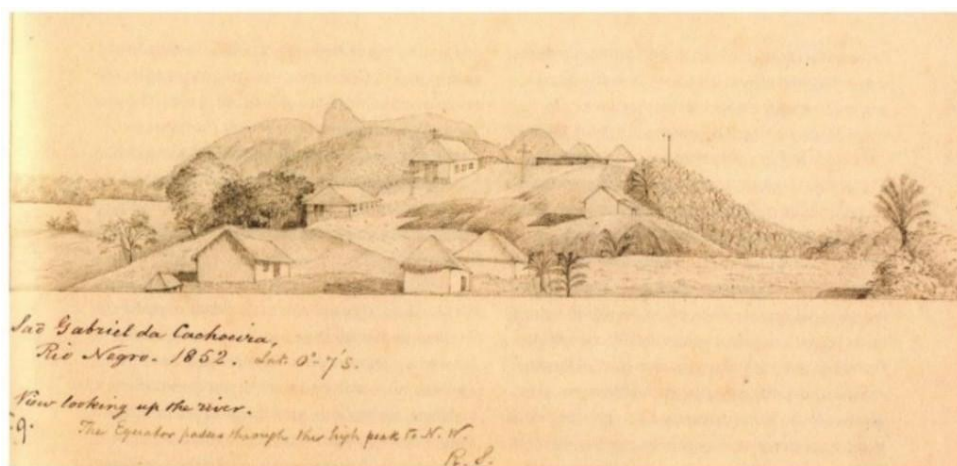 São Gabriel da Cachoeira,
Rio Negro. 1852. Lat. 0°-7's.
View looking up the river.
g.
The Equator passes through this high peak to N. W.
R. S.